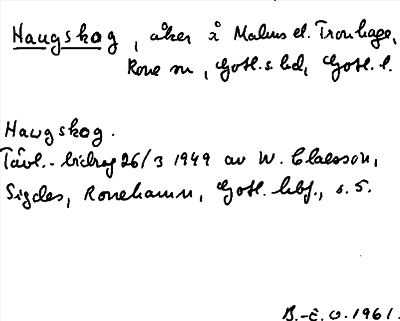 Haugskog, åker å Malms el. Tronhage,
Rone sn, Gotl. s. hd, Gotl. l.
Haugskog.
Tävl.-bidrag 26/3 1949 av W. Claesson,
Sigdes, Ronehamn, Gotl. hbf., s. 5.
B.-E. O. 1961.